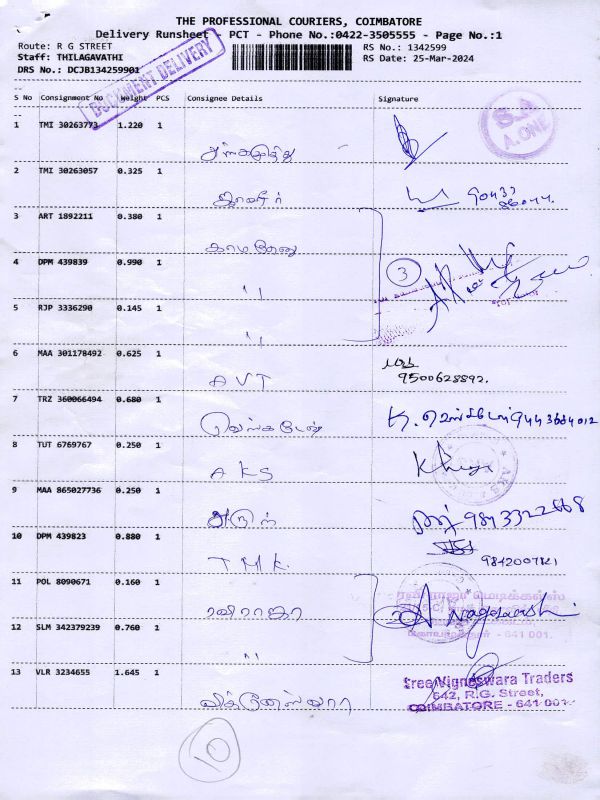 THE PROFESSIONAL COURIERS, COIMBATORE
Delivery Runsheet - PCT - Phone No.:0422-3505555 - Page No.:1
Route: R G STREET RS No.: 1342599
Staff: THILAGAVATHI RS Date: 25-Mar-2024
DRS No.: DCJB134259901
DOCUMENT DELIVERY
S No Consignment No Weight PCS Consignee Details Signature
S.A
A.ONE
1 TMI 30263773 1.220 1
2 TMI 30263057 0.325 1
3 ART 1892211 0.380 1
காமதேனு
4 DPM 439839 0.990 1
3
" "
5 RJP 3336290 0.145 1
" "
6 MAA 301178492 0.625 1
AVT 9500628892.
7 TRZ 360066494 0.680 1
வெங்கடேஷ் K. வெங்கடேஷ் 9443684012
8 TUT 6769767 0.250 1
AKS
9 MAA 865027736 0.250 1
அருள் 9843322868
10 DPM 439823 0.880 1
TMK.
11 POL 8090671 0.160 1
ரவிராஜா
12 SLM 342379239 0.760 1
" "
- 641 001.
13 VLR 3234655 1.645 1
விக்னேஸ்வரா
Sree Vigneswara Traders
642, R.G. Street,
COIMBATORE - 641 001.
10